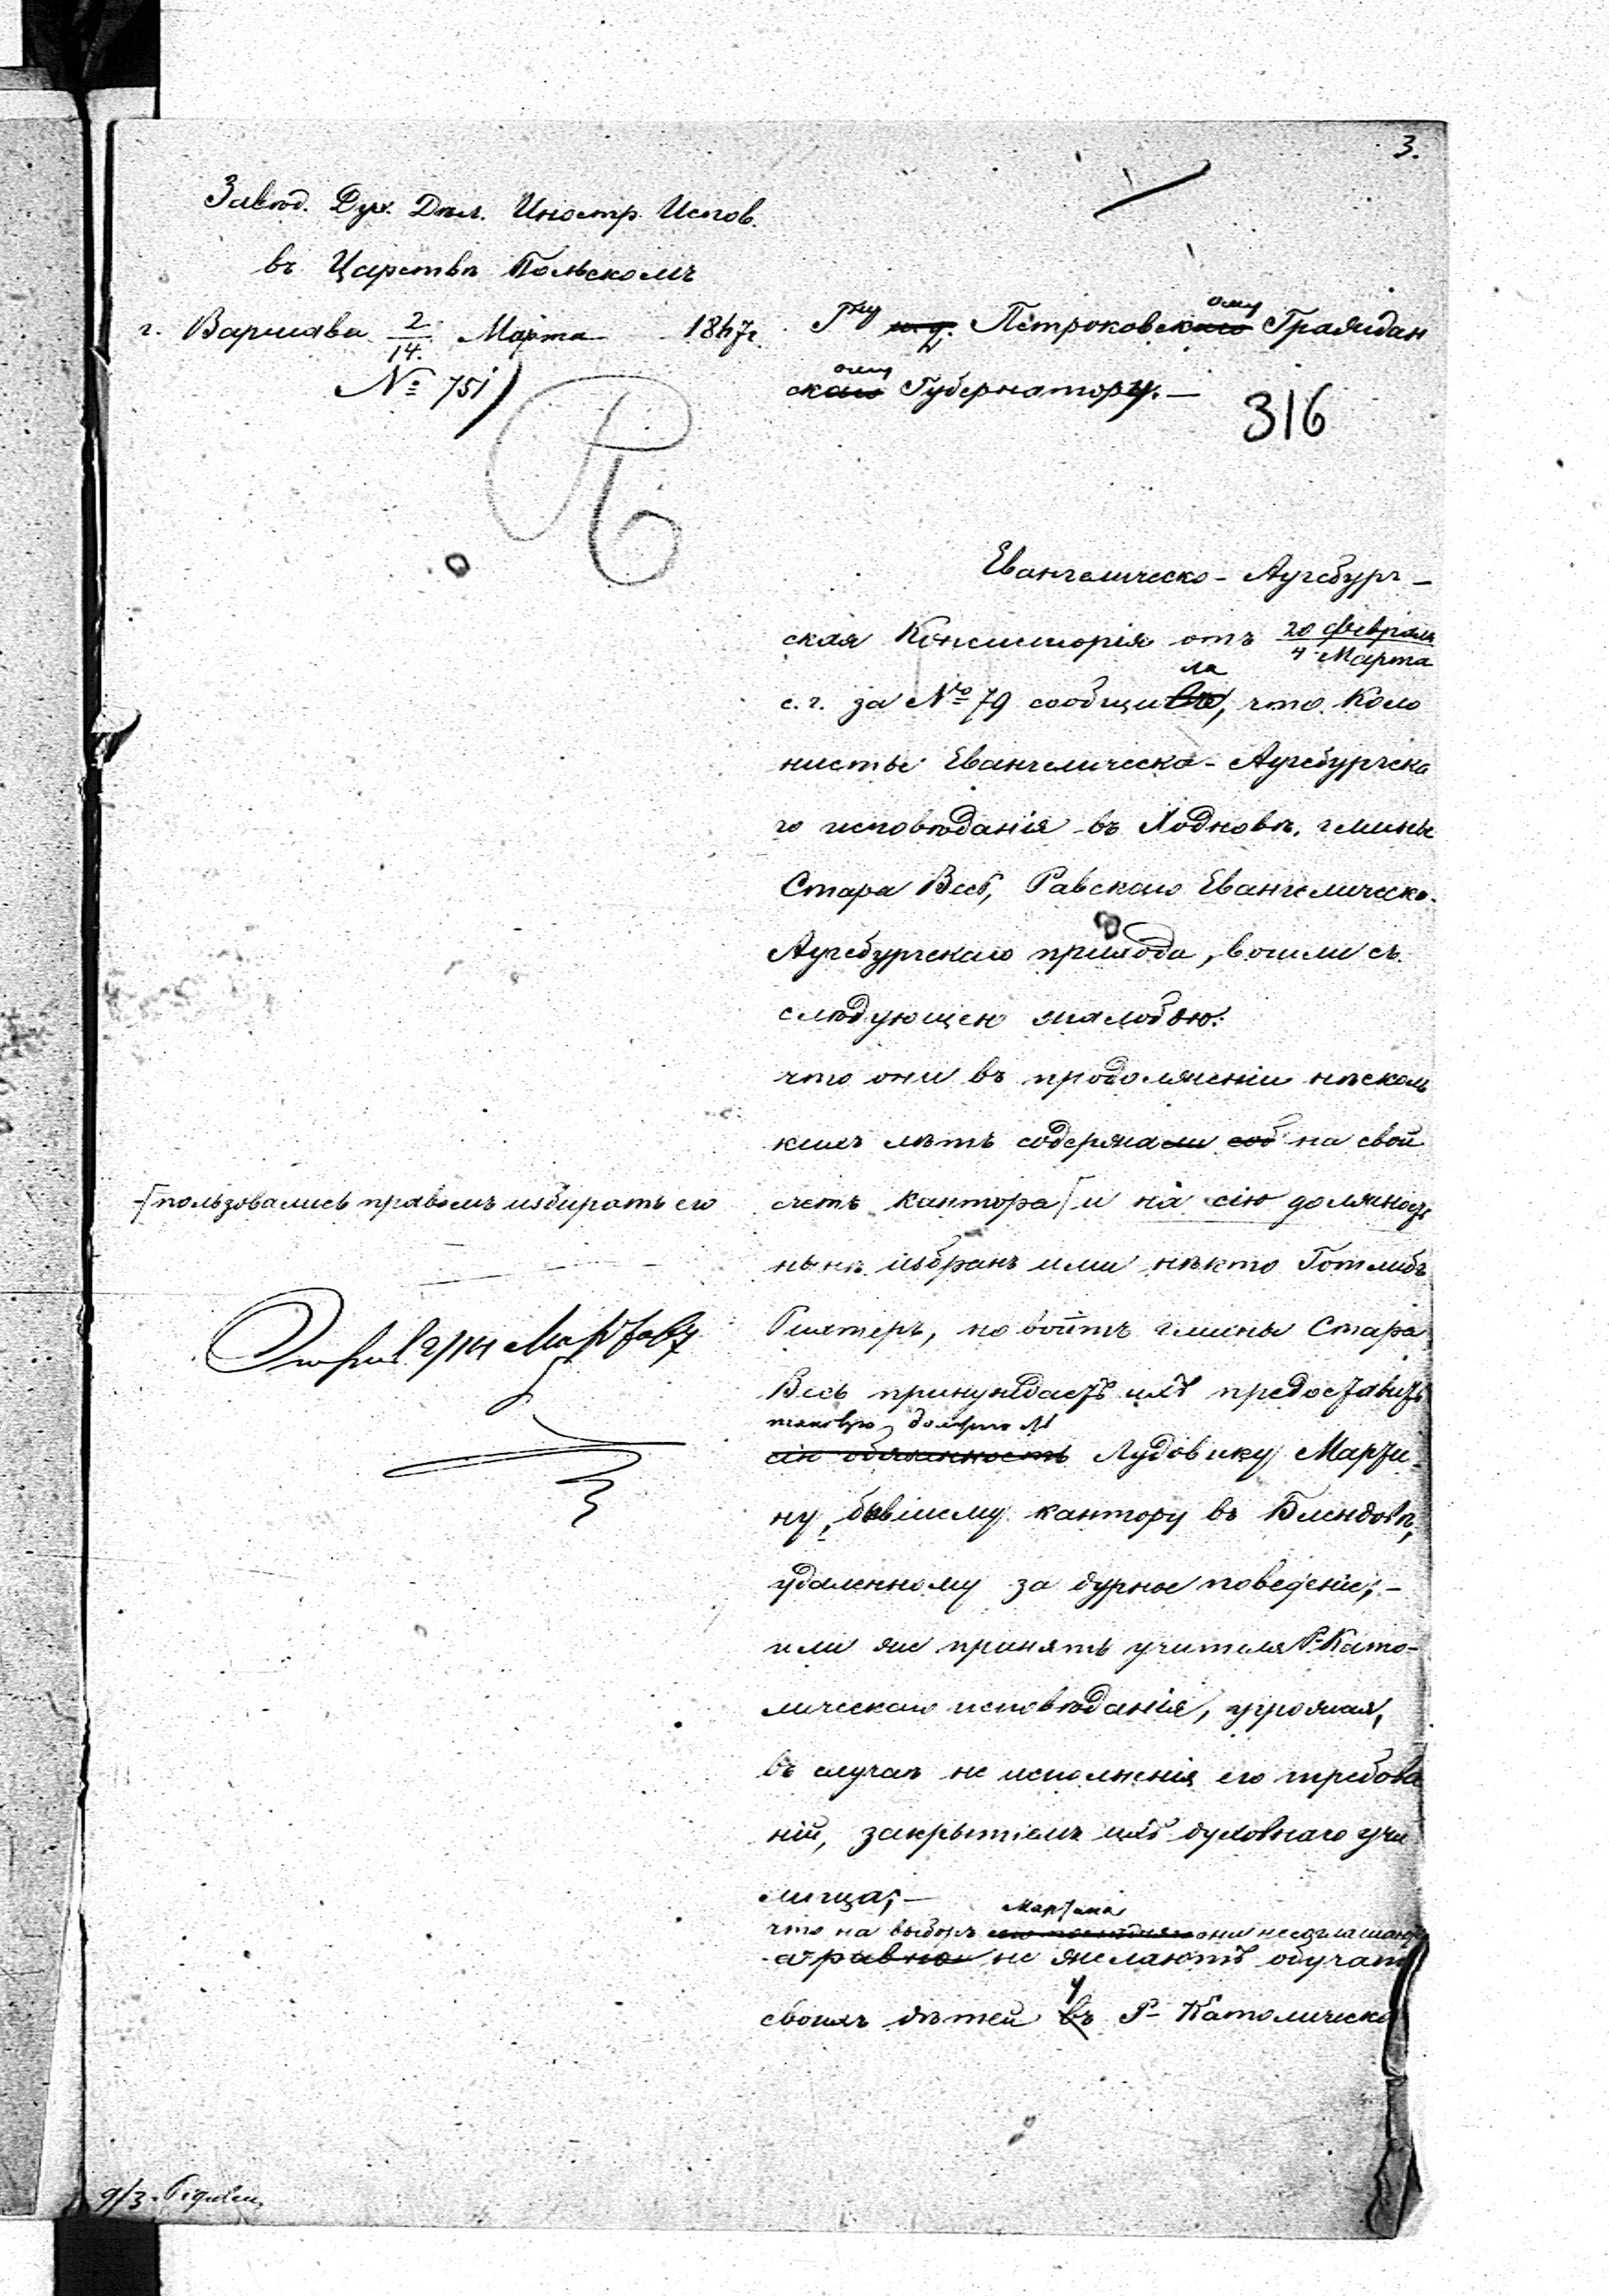 3.
Завѣд. Дух. Дѣл. Иностр. Испов.
въ Царствѣ Польскомъ
г. Варшава 2/14. Марта 1867 г.
№ 751
Гну и. д. Петроковскаго ому Граждан
скаго ому Губернатору. —
316
Евангелическо - Аугсбург-
ская Консисторія отъ 20 Февраля / 4 Марта
ла
с. г. за № 79 сообщи, что Коло
нисты Евангелическо - Аугсбургска
го исповѣданія въ гмины
Стара Весь, Равскаго Евангелическо-
Аугсбургскаго прихода, вошли съ
слѣдующею жалобою:
что они въ продолженіи нѣсколь
кихъ лѣтъ содержали соб на свой
счетъ кантора и на сію должность
пользовались правомъ избирать его
нынѣ избранъ ими нѣкто Готлибъ
но войтъ гмины Стара
Весь принуждаетъ ихъ предоставить
таковую должность
сію обязанность Лудовику Марти-
ну, бывшему кантору въ Блендовѣ,
удаленному за дурное поведеніе; -
или же принять учителя Р. Като-
лическаго исповѣданія, угрожая,
въ случаѣ не исполненія его требова
ній, закрытіемъ ихъ духовнаго учи
лища; —
Мартина
что на выборъ они не соглашаются
а равно не желаютъ обучать
у
своихъ дѣтей въ Р- Католическа